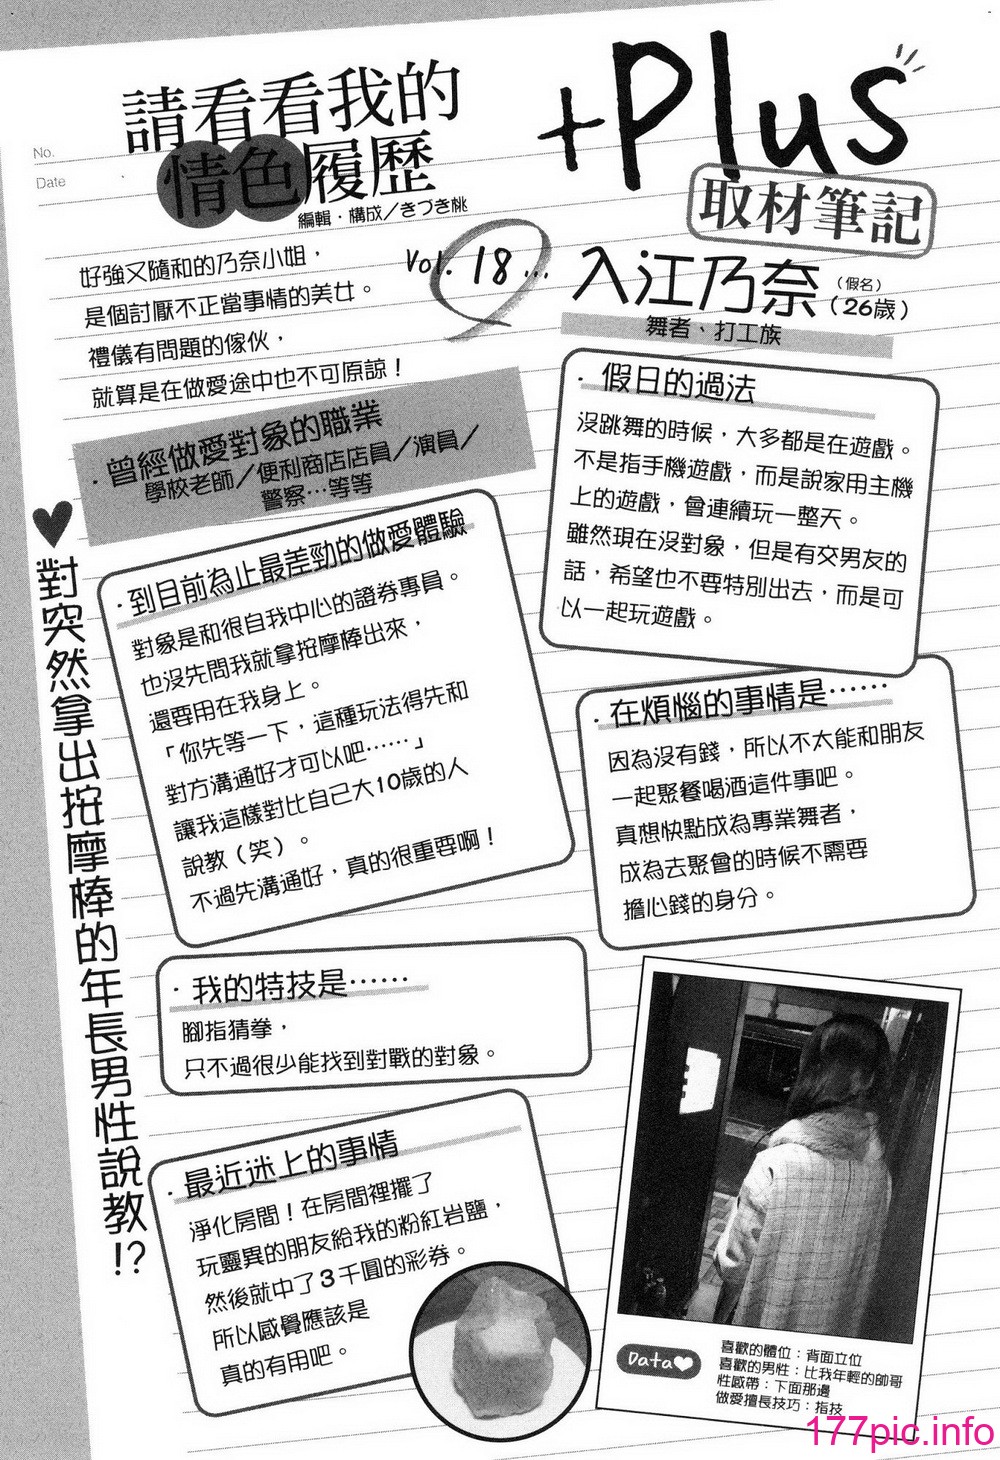 No.
Date
請看看我的
情色履歷
編輯・構成／きづき桃
+Plus
取材筆記
好強又隨和的乃奈小姐，
是個討厭不正當事情的美女。
禮儀有問題的傢伙，
就算是在做愛途中也不可原諒！
Vol. 18...
入江乃奈（假名）（26歲）
舞者、打工族
・曾經做愛對象的職業
學校老師／便利商店店員／演員／
警察…等等
・假日的過法
沒跳舞的時候，大多都是在遊戲。
不是指手機遊戲，而是說家用主機
上的遊戲，曾連續玩一整天。
雖然現在沒對象，但是有交男友的
話，希望也不要特別出去，而是可
以一起玩遊戲。
♥對突然拿出按摩棒的年長男性說教!?
・到目前為止最差勁的做愛體驗
對象是和很自我中心的證券專員。
也沒先問我就拿按摩棒出來，
還要用在我身上。
「你先等一下，這種玩法得先和
對方溝通好才可以吧……」
讓我這樣對比自己大10歲的人
說教（笑）。
不過先溝通好，真的很重要啊！
・在煩惱的事情是……
因為沒有錢，所以不太能和朋友
一起聚餐喝酒這件事吧。
真想快點成為專業舞者，
成為去聚會的時候不需要
擔心錢的身分。
・我的特技是……
腳指猜拳，
只不過很少能找到對戰的對象。
・最近迷上的事情
淨化房間！在房間裡擺了
玩靈異的朋友給我的粉紅岩鹽，
然後就中了3千圓的彩券。
所以感覺應該是
真的有用吧。
Data♥
喜歡的體位：背面立位
喜歡的男性：比我年輕的帥哥
性感帶：下面那邊
做愛擅長技巧：指技
177pic.info